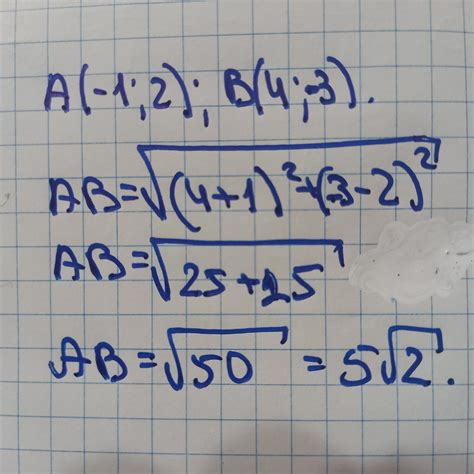 A(-1;2); B(4;-3).
AB=√(4+1)²+(-3-2)²
AB=√25+25
AB=√50 = 5√2.